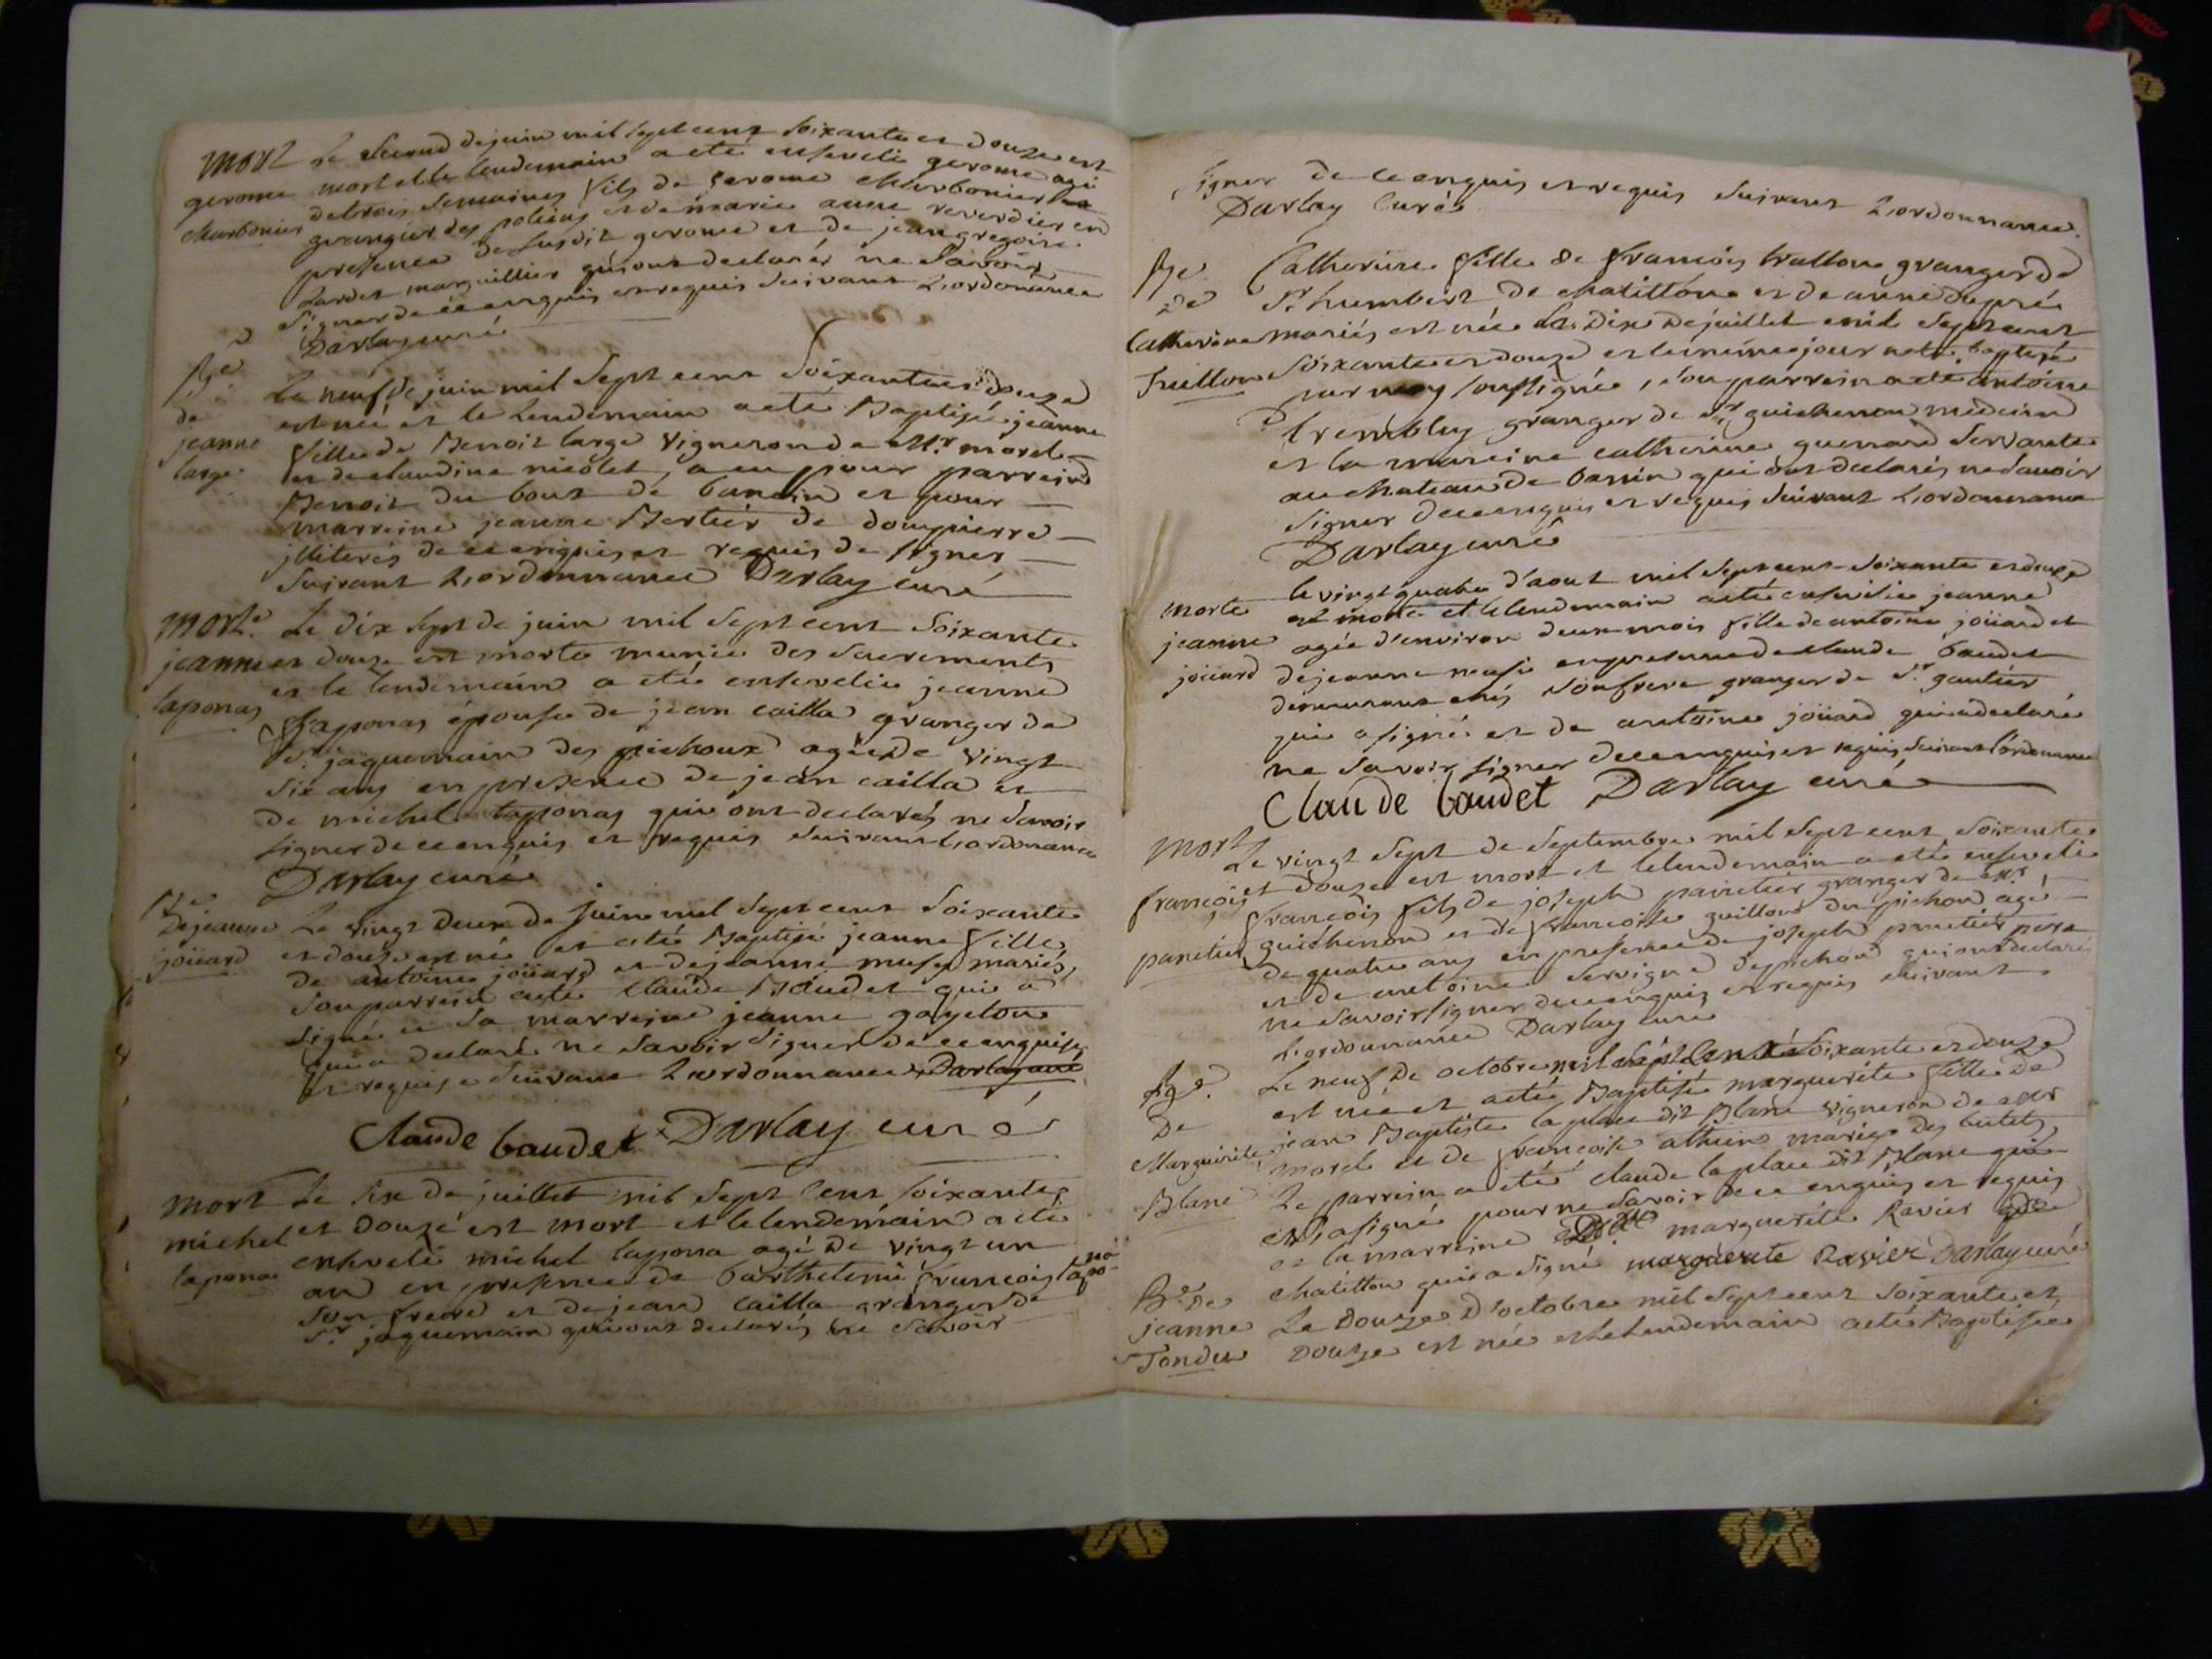 mort Le Second de juin mil sept cent soixante et douze est
gerome mort et le lendemain a eté enseveli gerome agé
charbonier de trois semaines fils de gerome charbonier
granger des poleins et de marie anne reverdier en
presence de susdit gerome et de jean gregoire
Lardet marguillier qui ont declarés ne Savoir
signer de ce enquis et requis suivant L'ordonnance
Darlay curé
Bge Le neuf de juin mil sept cent Soixante et douze
de est née et le Lendemain a eté Baptisée jeanne
jeanne fille de Benoit large vigneron de Mr. morel
large et de claudine nicolet, a eu pour parrein
Benoit du bout de baneins et pour
marreine jeanne Bertier de dompierre
illiterés de ce enquis et requis de signer
Suivant L'ordonnance Darlay curé
morte. Le dix sept de juin mil sept cent Soixante
jeanne et douze est morte munie des Sacrements
taponas et le lendemain a eté ensevelie jeanne
Taponas épouse de jean cailla granger de
Sr. jaquemain des pichoux agée de vingt
six ans en presence de jean cailla et
de michel taponas qui ont declarés ne Savoir
signer de ce enquis et requis suivant L'ordonnance
Darlay curé
Bge
de jeanne Le vingt deux de juin mil sept cent Soixante
joüard et douze est née et a eté Baptisée jeanne fille
de antoine joüard et de jeanne musy mariés,
Son parrein a eté Claude Baudet qui a
signé et Sa marreine jeanne gayelon
qui a declaré ne Savoir signer de ce enquise
et requise Suivant L'ordonnance Darlay curé
Claude baudet Darlay curé
mort Le six de juillet mil sept cent soixante
michel et douze est mort et le lendemain a eté
tapona enseveli michel tapona agé de vingt un
an en presence de barthelemi françois tapona
Son frere et de jean cailla granger de
Sr. jaquemain qui ont declarés ne Savoir
signer de ce enquis et requis Suivant L'ordonnance.
Darlay Curé
Bge Catherine fille de françois trullon granger de
de Sr. humbert de chatillon et de anne dupré
Catherine mariés est née Le Dix de juillet mil Sept cent
Trullon Soixante et douze et le même jour a eté baptisée
par moy soussigné, Son parrein a eté antoine
trembley granger de Sr. guichenon medecin
et la mareine catherine guenard Servante
au chateau de banein qui ont declarés ne Savoir
signer de ce enquis et requis Suivant L'ordonnance
Darlay curé
le vingt quatre d'aout mil sept cent Soixante et douze
morte est morte et le lendemain a eté ensevelie jeanne
jeanne agée d'environ deux mois fille de antoine joüard et
joüard de jeanne musy en presence de claude baudet
demeurant chés Son frere granger de Sr. gautier
qui a signé et de antoine joüard qui a declaré
ne Savoir signer de ce enquis et requis Suivant l'ordonnance
Claude baudet Darlay curé
mort Le vingt Sept de Septembre mil Sept cent Soixante
françois et douze est mort et le lendemain a eté enseveli
panetier françois fils de joseph panetier granger de Mr
guichenon et de françoise guillon du pichon agé
de quatre ans en presence de joseph panetier pere
et de antoine Servigne de pichon qui ont declaré
ne Savoir signer de ce enquis et requis Suivant
L'ordonnance Darlay curé
Bge. Le neuf de octobre mil Sept Cent Soixante et douze
De est née et a eté Baptisée marguerite fille de
Marguerite jean Baptiste laplace dit Blanc vigneron de Mr
Blanc morel et de françoise athuin mariés des butets
Le parrein a eté Claude laplace dit Blanc qui
n'a signé pour ne Savoir de ce enquis et requis
et la marreine Dlle marguerite Ravier de
chatillon qui a signé marguerite Ravier Darlay curé
Bge de
jeanne Le Douze d'octobre mil Sept cent Soixante et
Tondu Douze est née et le lendemain a eté Baptisée